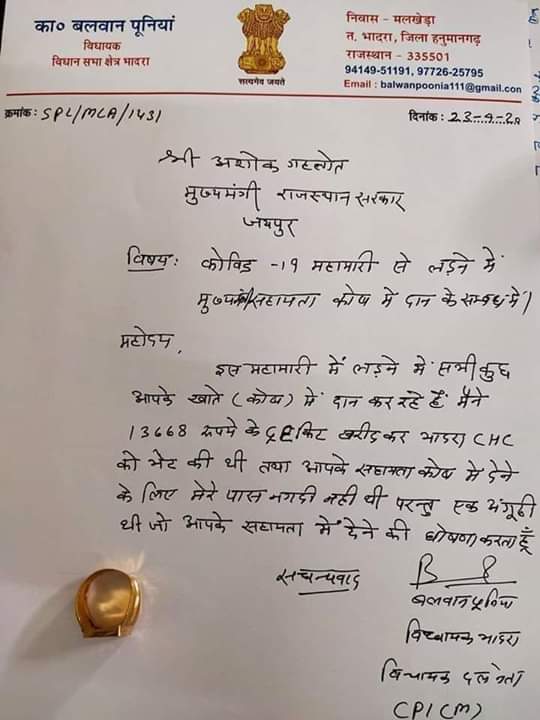 का० बलवान पूनियां
विधायक
विधान सभा क्षेत्र भादरा
सत्यमेव जयते
निवास - मलखेड़ा
त. भादरा, जिला हनुमानगढ़
राजस्थान - 335501
94149-51191, 97726-25795
Email : balwanpoonia111@gmail.con
क्रमांक: SPL/MLA/1431
दिनांक: 23-4-20
श्री अशोक गहलोत
मुख्यमंत्री राजस्थान सरकार
जयपुर
विषय: कोविड -19 महामारी से लड़ने में
मुख्यमंत्री सहायता कोष में दान के सम्बन्ध में।
महोदय,
इस महामारी में लड़ने में सभी कुछ
आपके खाते (कोष) में दान कर रहे हैं मैने
13668 रूपये के PPE किट खरीद कर भादरा CHC
को भेंट की थी तथा आपके सहायता कोष में देने
के लिए मेरे पास नगदी नहीं थी परन्तु एक अंगूठी
थी जो आपके सहायता में देने की घोषणा करता हूँ
सधन्यवाद
बलवान पूनिया
विधायक भादरा
विधायक दल नेता
CPI(M)